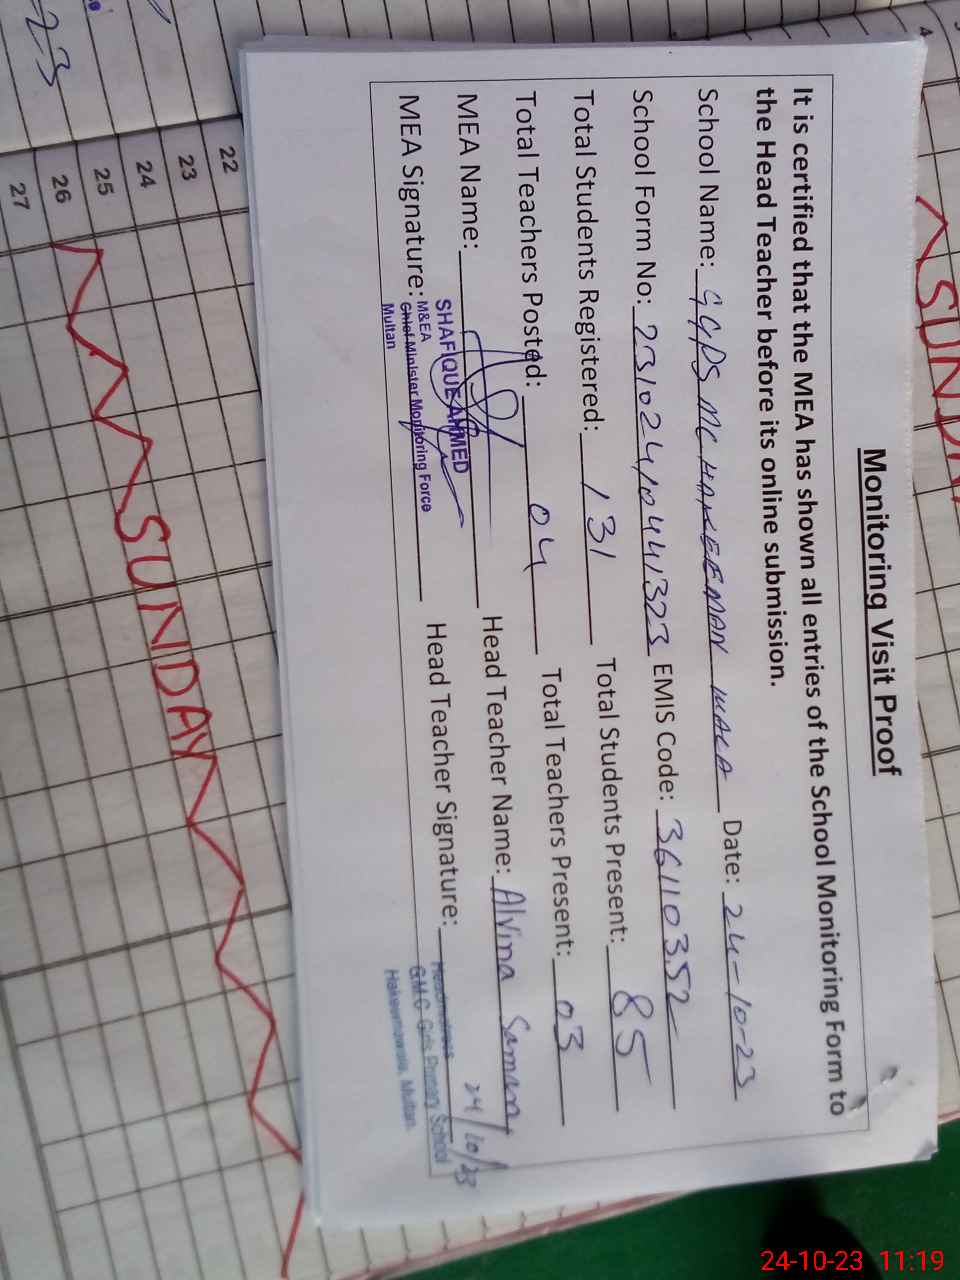 Monitoring Visit Proof
It is certified that the MEA has shown all entries of the School Monitoring Form to
the Head Teacher before its online submission.
School Name: GGPS MC HAKEEMAN WALA Date: 24-10-23
School Form No: 23102410441323 EMIS Code: 36110352
Total Students Registered: 131 Total Students Present: 85
Total Teachers Posted: 04 Total Teachers Present: 03
MEA Name: Head Teacher Name: Alvina Saman
MEA Signature: Head Teacher Signature:
SHAFIQUE AHMED
M&EA
Chief Minister Monitoring Force
Multan
24/10/23
Headmistress
G.M.C Girls Primary School
Hakeemanwala, Multan.
SUNDAY
22
23
24
25
26
27
SUNDAY
4
23
24-10-23 11:19